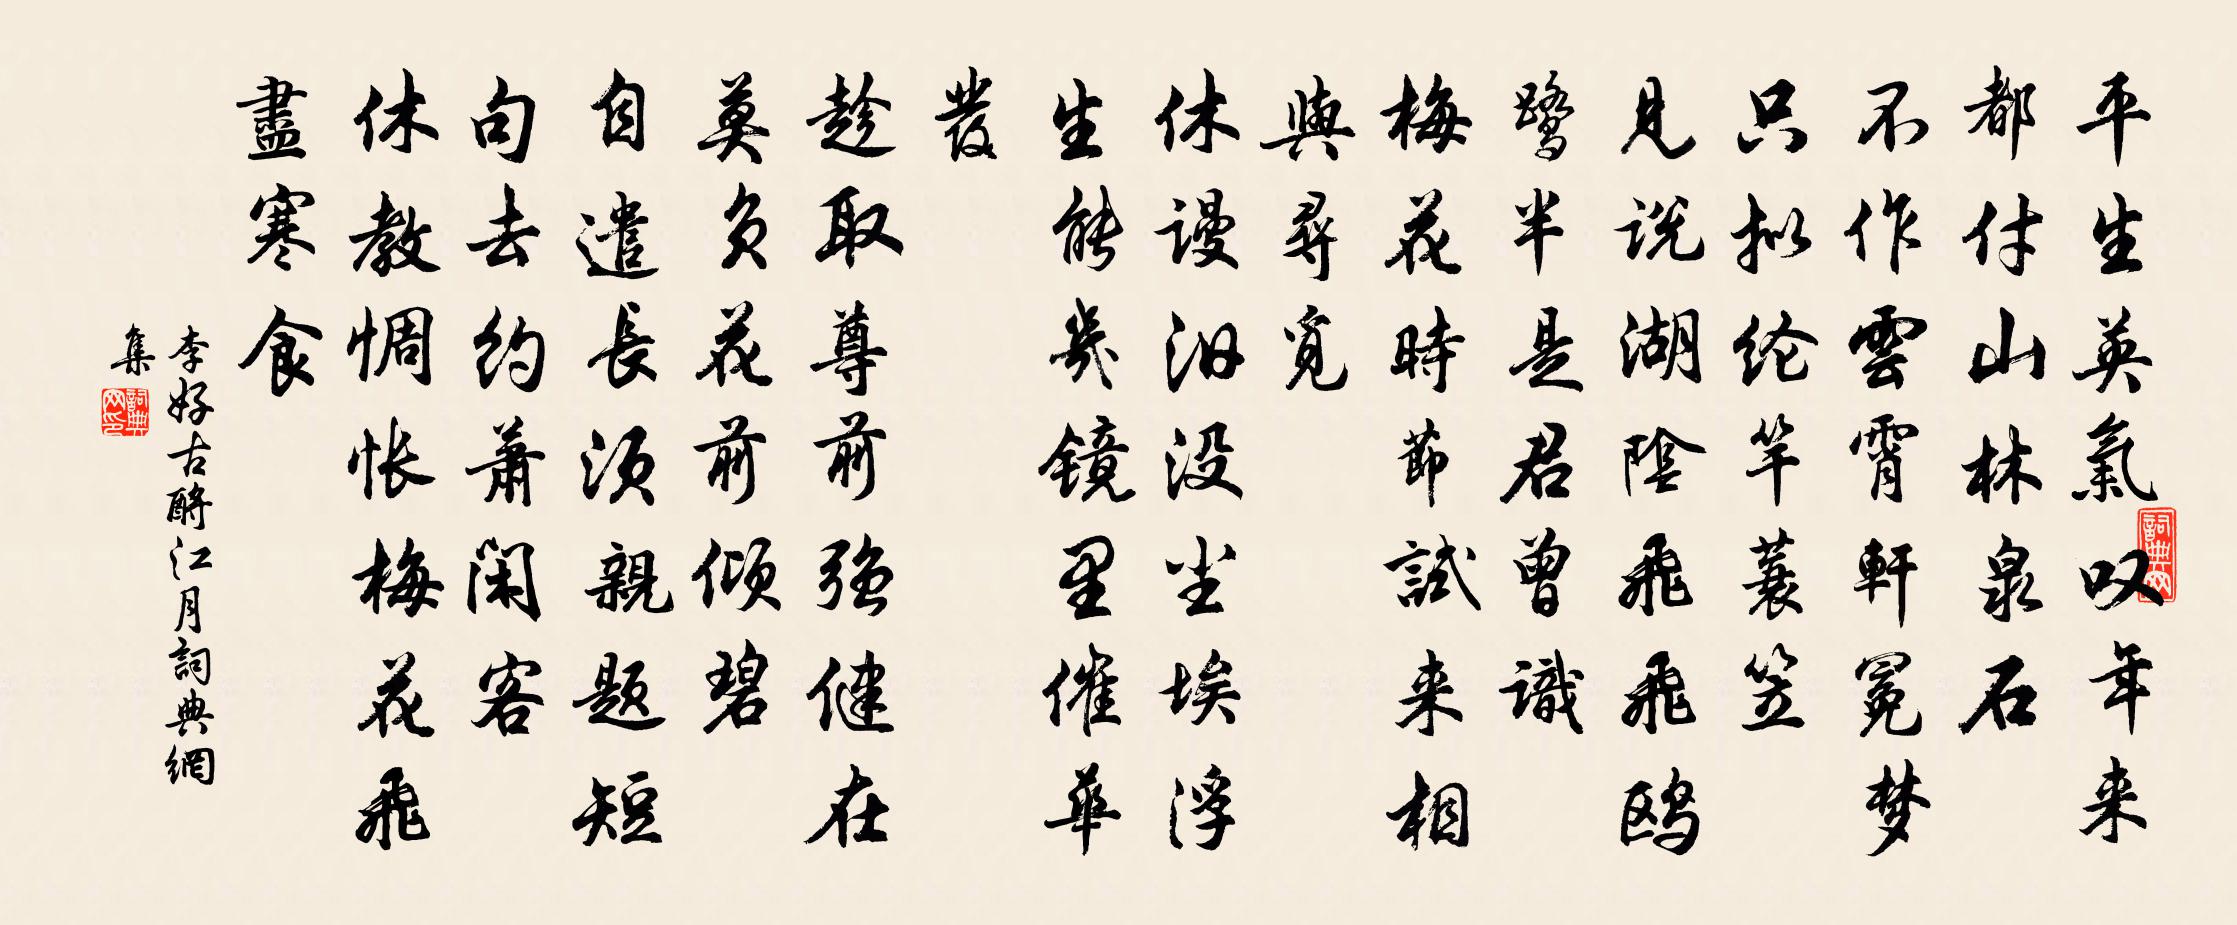 平生英氣叹年来
都付山林泉石
不作雲霄軒冕梦
只拟纶竿蓑笠
見说湖陰飛飛鸥
鹭半是君曾識
梅花時節試来相
與尋覓
休谩汩没尘埃浮
生能幾镜里催華
發
趁取尊前强健在
莫负花前倾碧
自遣長须親题短
句去约萧闲客
休教惆怅梅花飛
盡寒食
李好古酹江月詞典網
集
詞典网
詞典网印